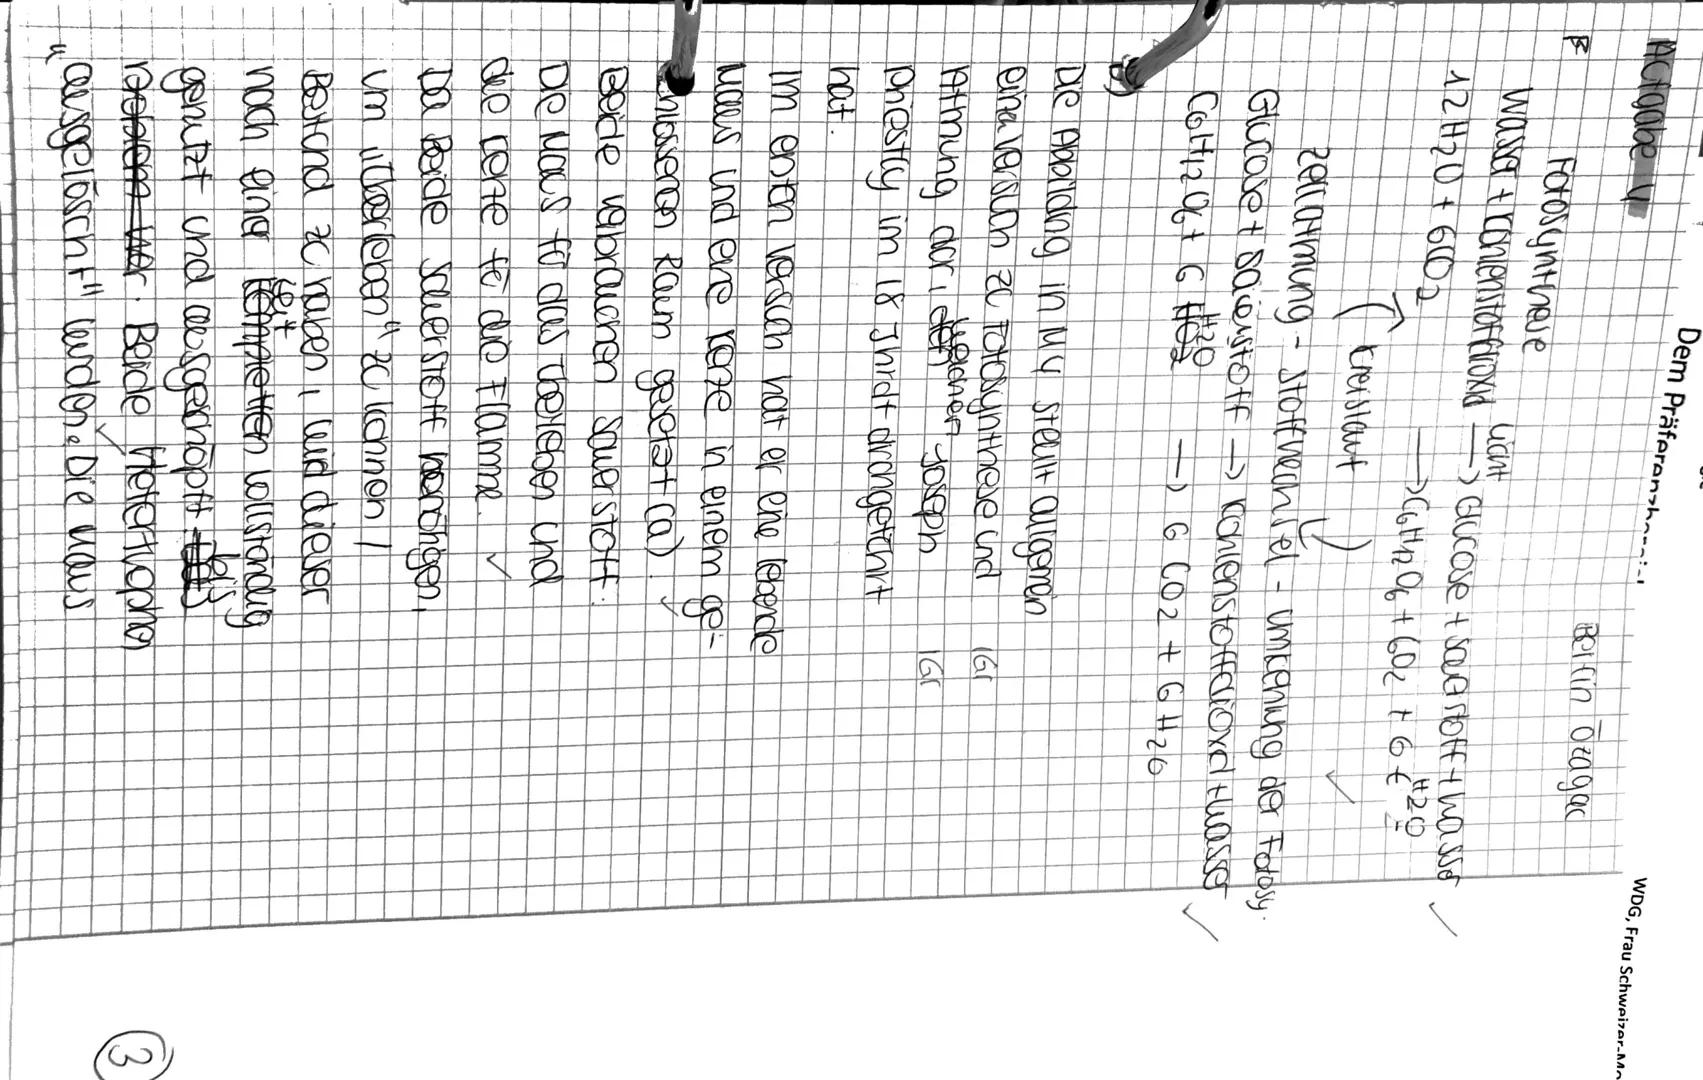 Dem Präferenz
WDG, Frau Schweizer-Me
Aufgabe 4
Berfin Özagac
Fotosynthese
Wasser + Kohlenstoffdioxid Licht —> Glucose + Sauerstoff + Wasser
12 H2O + 6CO2 —> C6H12O6 + CO2 + 6 H2O
Kreislauf
Zellatmung - Stoffwechsel - Umkehrung der Fotosy.
Glucose + Sauerstoff —> Kohlenstoffdioxid + Wasser
C6H12O6 + 6 H2O —> 6 CO2 + 6 H2O
Die Abbildung in M4 stellt allgemein
einen Versuch zu Fotosynthese und
Gr
Atmung dar, welchen Joseph
Gr
Priestly im 18 Jhrdt durchgeführt
hat.
Im ersten Versuch hat er eine lebende
Maus und eine Kerze in einem ge-
schlossenen Raum gesetzt (a).
Beide verbrauchen Sauerstoff.
Die Maus für das Überleben und
die Kerze für die Flamme.
Da Beide Sauerstoff benötigen,
um "überleben" zu können /
Bestand zu haben, wird dieser
nach einer Zeit vollständig
genutzt und ausgeschöpft bis
. Beide
"ausgelöscht" wurden. Die Maus
3